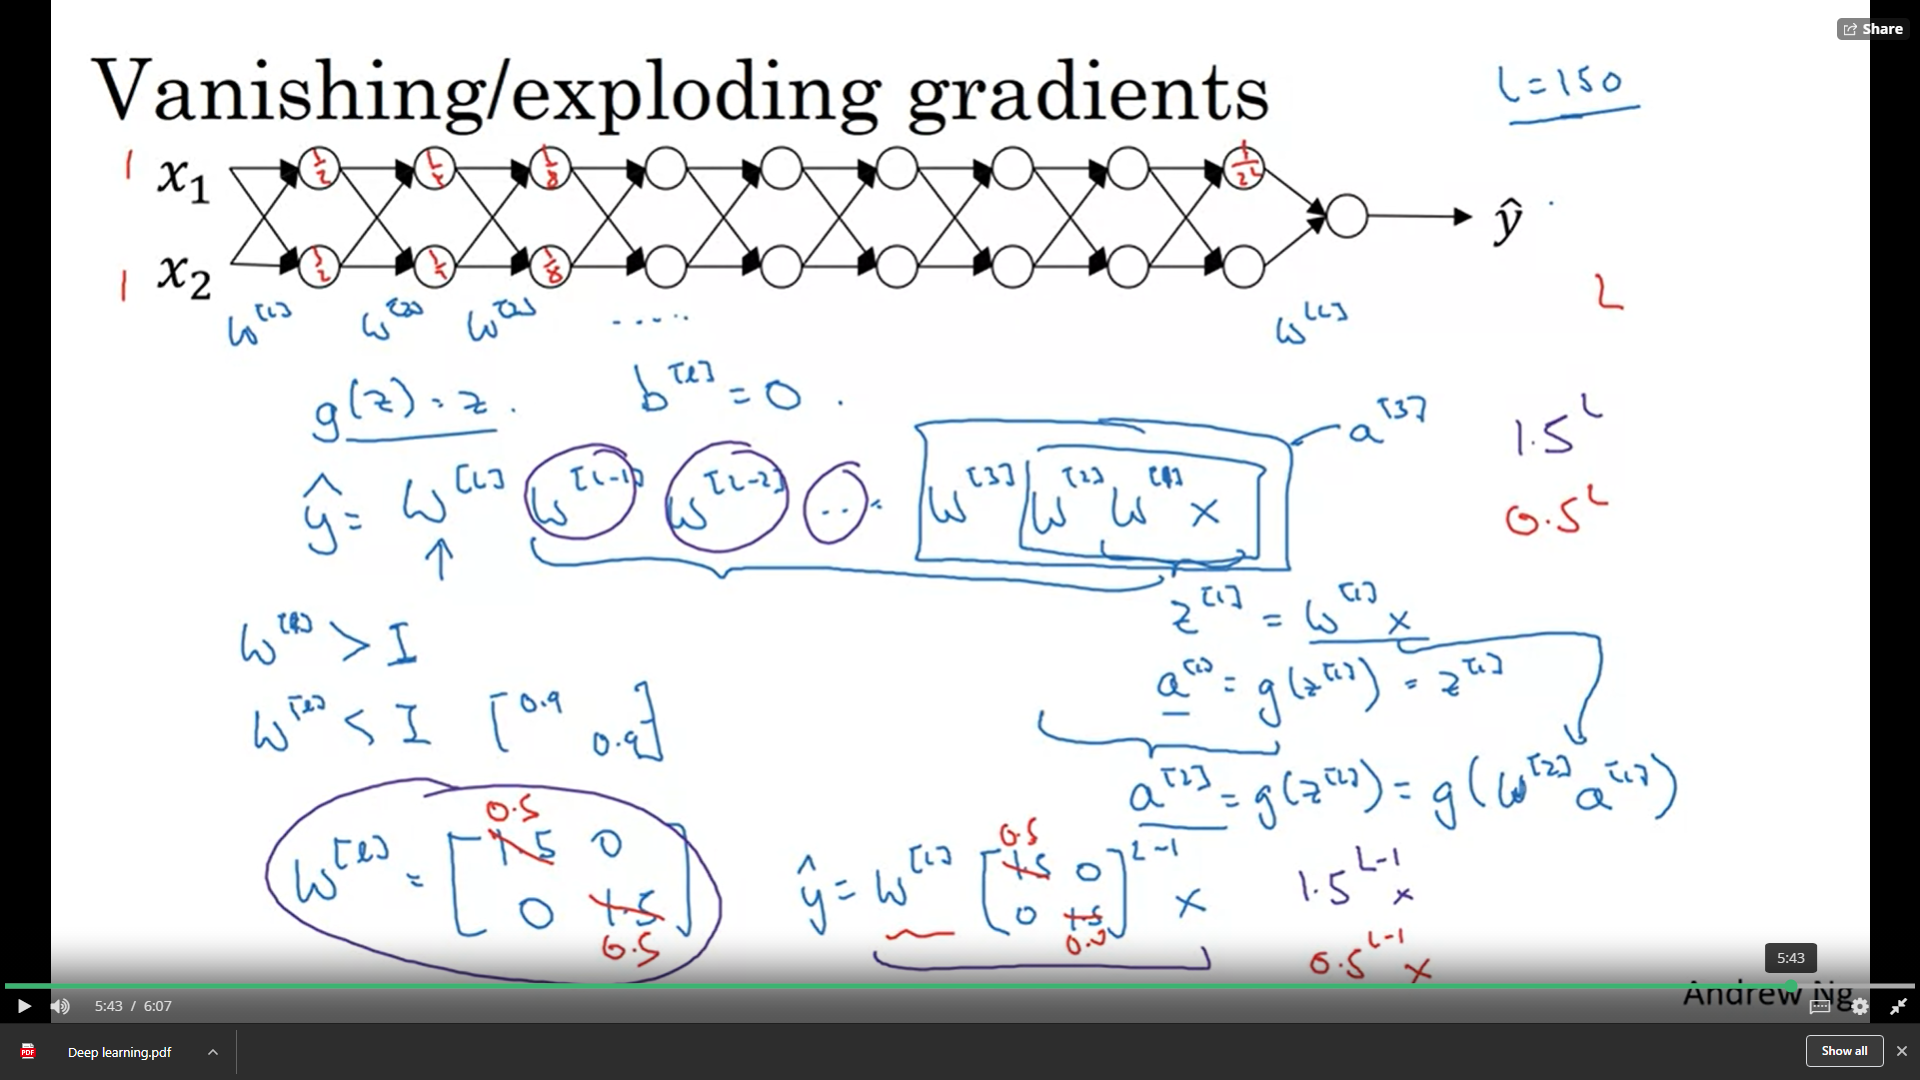 Share
Vanishing/exploding gradients
L=150
1 x₁ 1/2 1/4 1/8 1/2^L
ŷ
1 x₂ 1/2 1/4 1/8
L
W^[1] W^[2] W^[3] ..... W^[L]
g(z) = z. b^[l] = 0.
a^[3]
1.5^L
ŷ = W^[L] W^[L-1] W^[L-2] ... W^[3] W^[2] W^[1] x
0.5^L
z^[1] = W^[1] x
W^[l] > I
a^[1] = g(z^[1]) = z^[1]
W^[l] < I [0.9 0.9]
a^[2] = g(z^[2]) = g(W^[2] a^[1])
0.5 0.5
W^[l] = [1.5 0
0 1.5]
0.5
ŷ = W^[L] [1.5 0
0 1.5]^L-1 x
0.5
1.5^L-1 x
0.5^L-1 x
5:43
Andrew Ng
5:43 / 6:07
PDF Deep learning.pdf
Show all